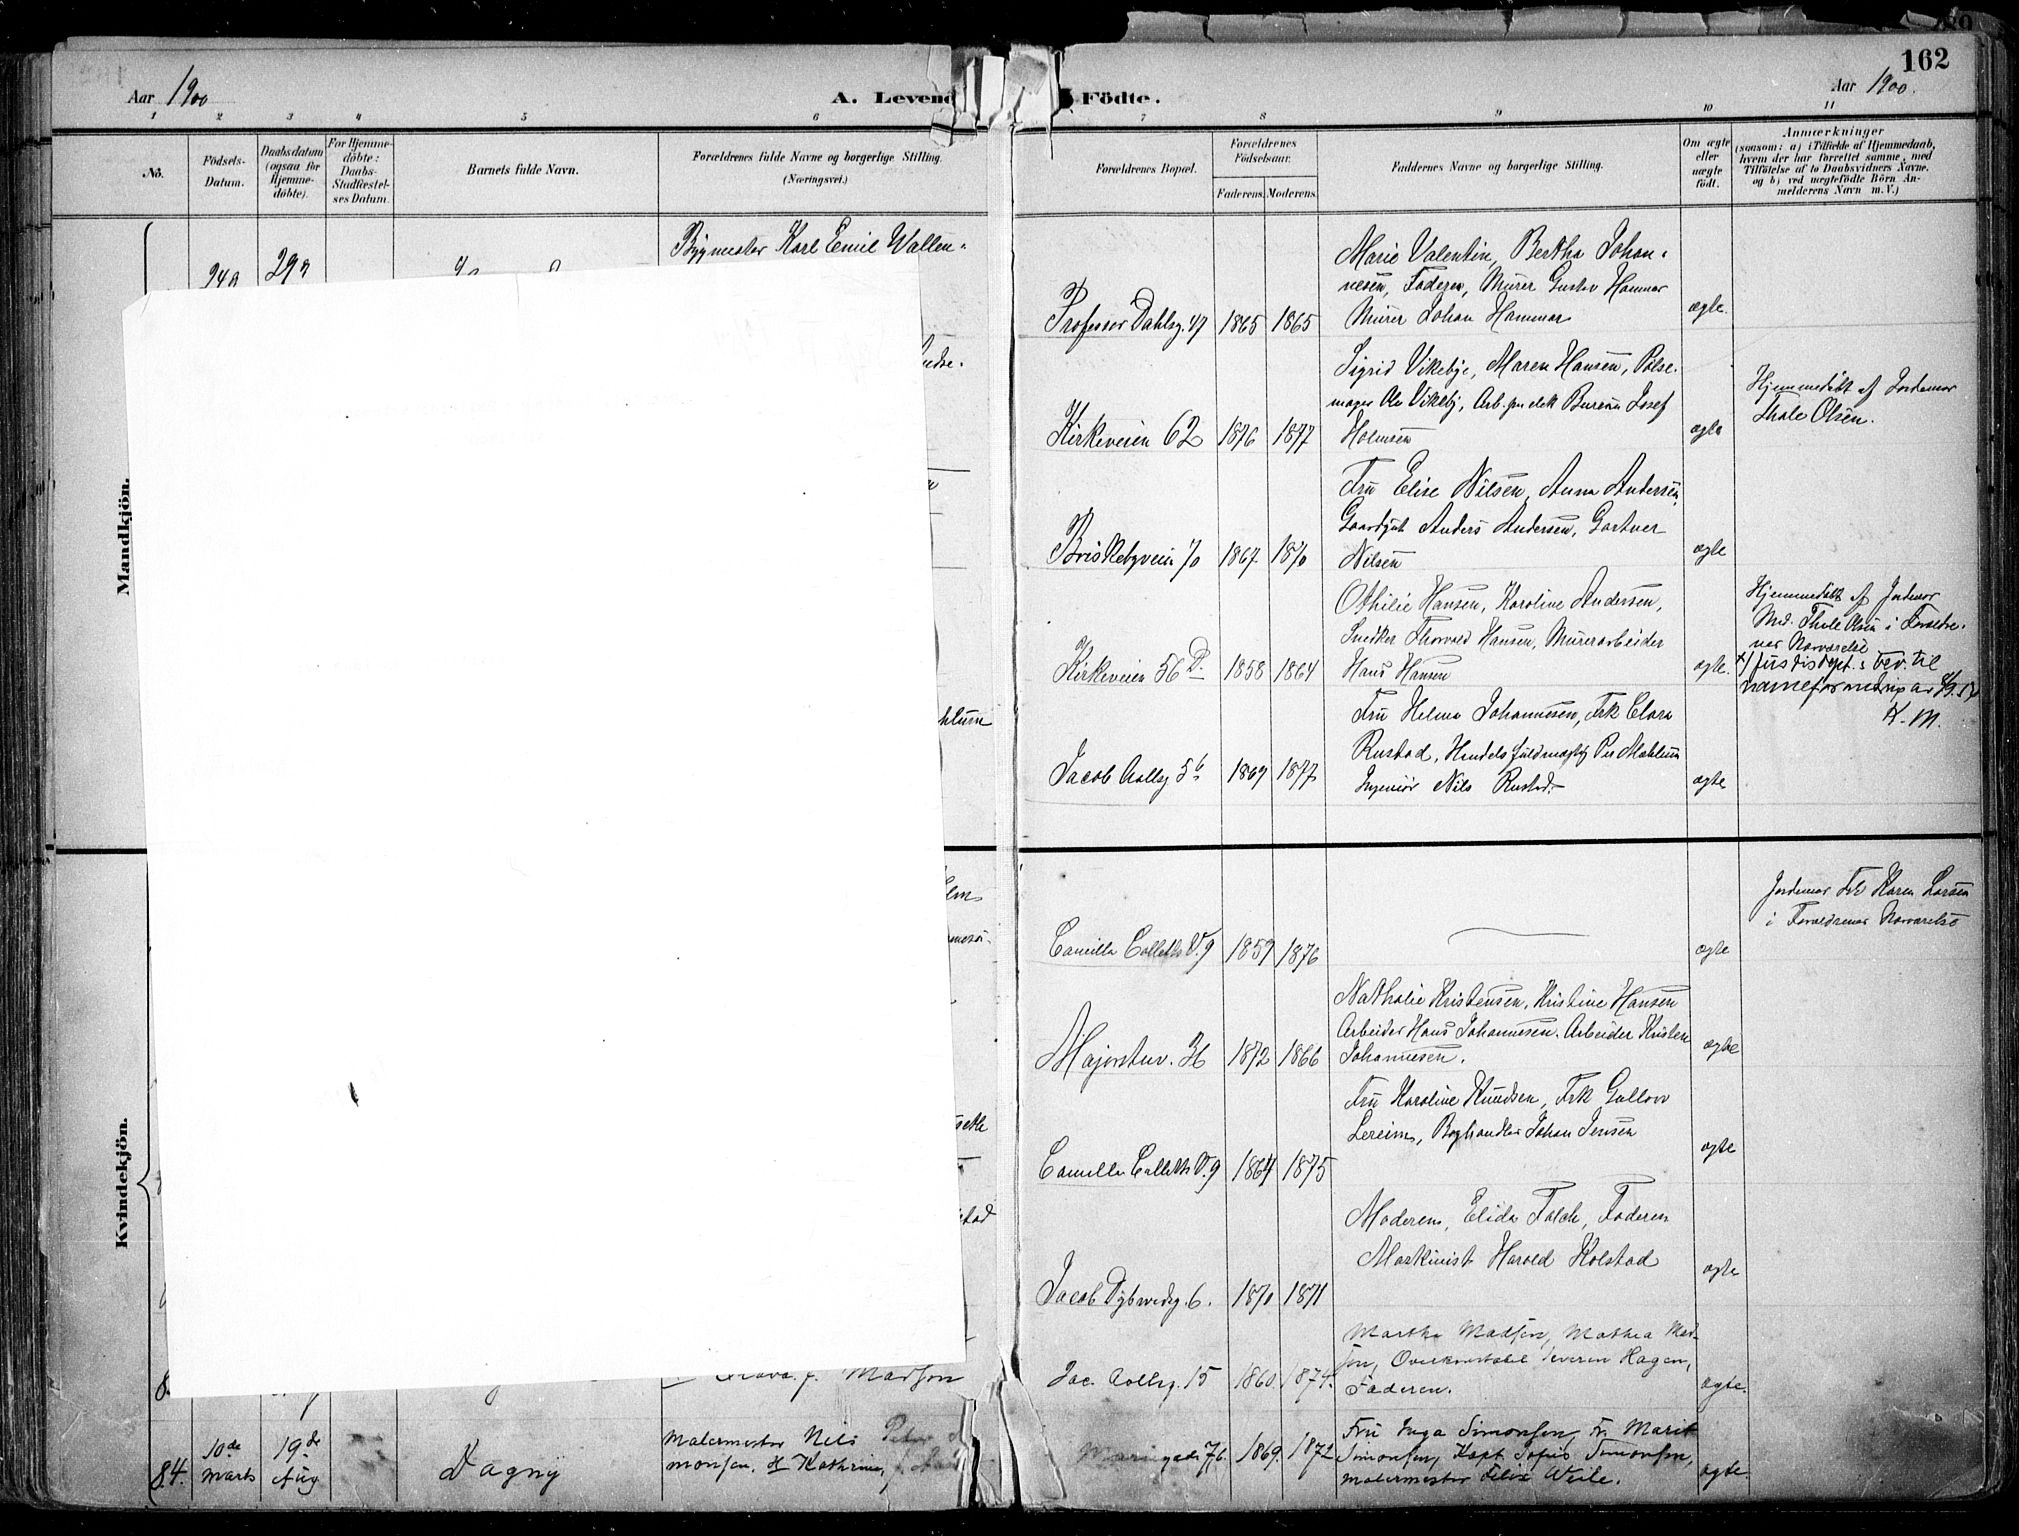 162
Aar 1900
A. Levend Födte.
Aar 1900.
1 2 3 4 5 6 7 8 9 10 11
No.
Födsels-
Datum.
Daabsdatum
(ogsaa for
Hjemme-
döbte).
For Hjemme-
döbte:
Daabs-
Stadfæstel-
ses Datum.
Barnets fulde Navn.
Forældrenes fulde Navne og borgerlige Stilling.
(Næringsvei.)
Forældrenes Bopæl.
Forældrenes
Födselsaar.
Faderens. Moderens.
Faddernes Navne og borgerlige Stilling.
Om ægte
eller
uægte
født.
Anmærkninger
(saasom: a) i Tilfælde af Hjemmedaab,
hvem der har forrettet samme, med
Tilföielse af to Daabsvidners Navne.
og b) ved uægtefödte Börn An-
melderens Navn m. V.)
Mandkjön.
29
Bygmester Karl Emil Wallen-
Professor Dahlsg. 47 1865 1865
Marie Valentin, Bertha Johan-
nesen, Faderen, Murer Gustav Hammar
Murer Johan Hammar
ægte.
Kirkeveien 62 1876 1877
Sigrid Vikebye, Maren Hansen, Pølse-
mager Ole Vikeby, Arb. Josef
Holmsen
ægte
Hjemmedøbt af Jordemor
Thale Olsen.
Briskebyveien 70 1867. 1870
Fru Elise Nilsen, Anna Andersen,
Gaardgut Anders Andersen, Gartner
Nilsen
ægte
Kirkeveien 56 D. 1858 1864
Othilie Hansen, Karoline Andersen,
Snedker Thorvald Hansen, Murerarbeider
Hans Hansen
ægte.
Hjemmedøbt af Jordemor
Mad. Thale Olsen i Forældre-
nes Nærværelse
x) Jusdisdept.s bev. til
K. M.
Jacob Aallsg 56 1869 1877
Fru Helma Johannessen, Frk Clara
Rustad, Handelsfuldmægtig Per Mæhlum
Ingeniør Nils Rustad.
ægte
Kvindekjön.
Camilla Colletts V. 9 1859 1876
ægte
Jordemor Frk Karen Larsen
i Forældrenes Nærværelse
Majorstuv. 36 1872 1866
Nathalie Kristensen, Kristine Hansen
Arbeider Hans Johannesen. Arbeider Kristen
Johannesen.
ægte
Camilla Colletts V. 9 1864 1875
Fru Karoline Knudsen, Frk
Lereim, Boghandler Johan Jensen
ægte
Jacob Dybwadsg. 6. 1870 1871
Moderen, Elida Falch, Faderen
Maskinist Harald Kolstad
ægte
Madsen
Jac. Aallsg. 15 1860. 1874.
Marthe Madsen, Mathea Mad-
sen, Overkonstabel Severin Hagen,
Faderen.
ægte.
84.
10de
marts
19de
Aug
Dagny
Malermester Nils Peter
monsen, Kathrine,
76. 1869. 1872
Fru Inga Simonsen, Fr. Marit
Simonsen, Kapt. Simonsen,
malermester Felix Weile.
ægte.